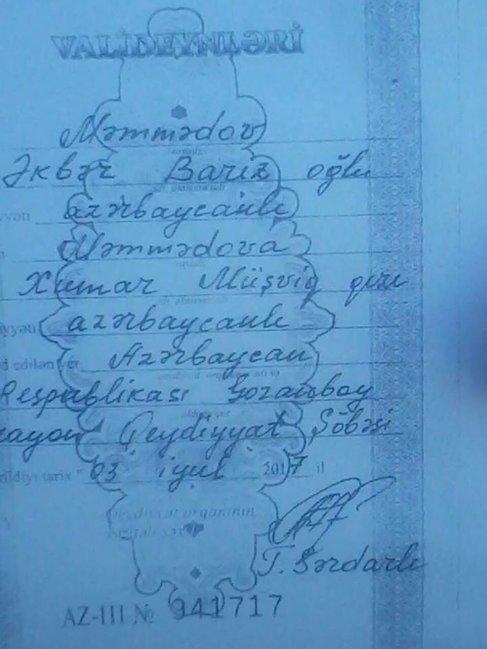 VALİDEYNLƏRİ
Məmmədov
Əkbər Bariz oğlu
azərbaycanlı
Məmmədova
Xumar Müşviq qızı
azərbaycanlı
Azərbaycan
Respublikası Goranboy
rayon Qeydiyyat Şöbəsi
tarix "03 iyul 2017 il
Qeydiyyat orqanının
T. Sərdarlı
AZ-III № 941717